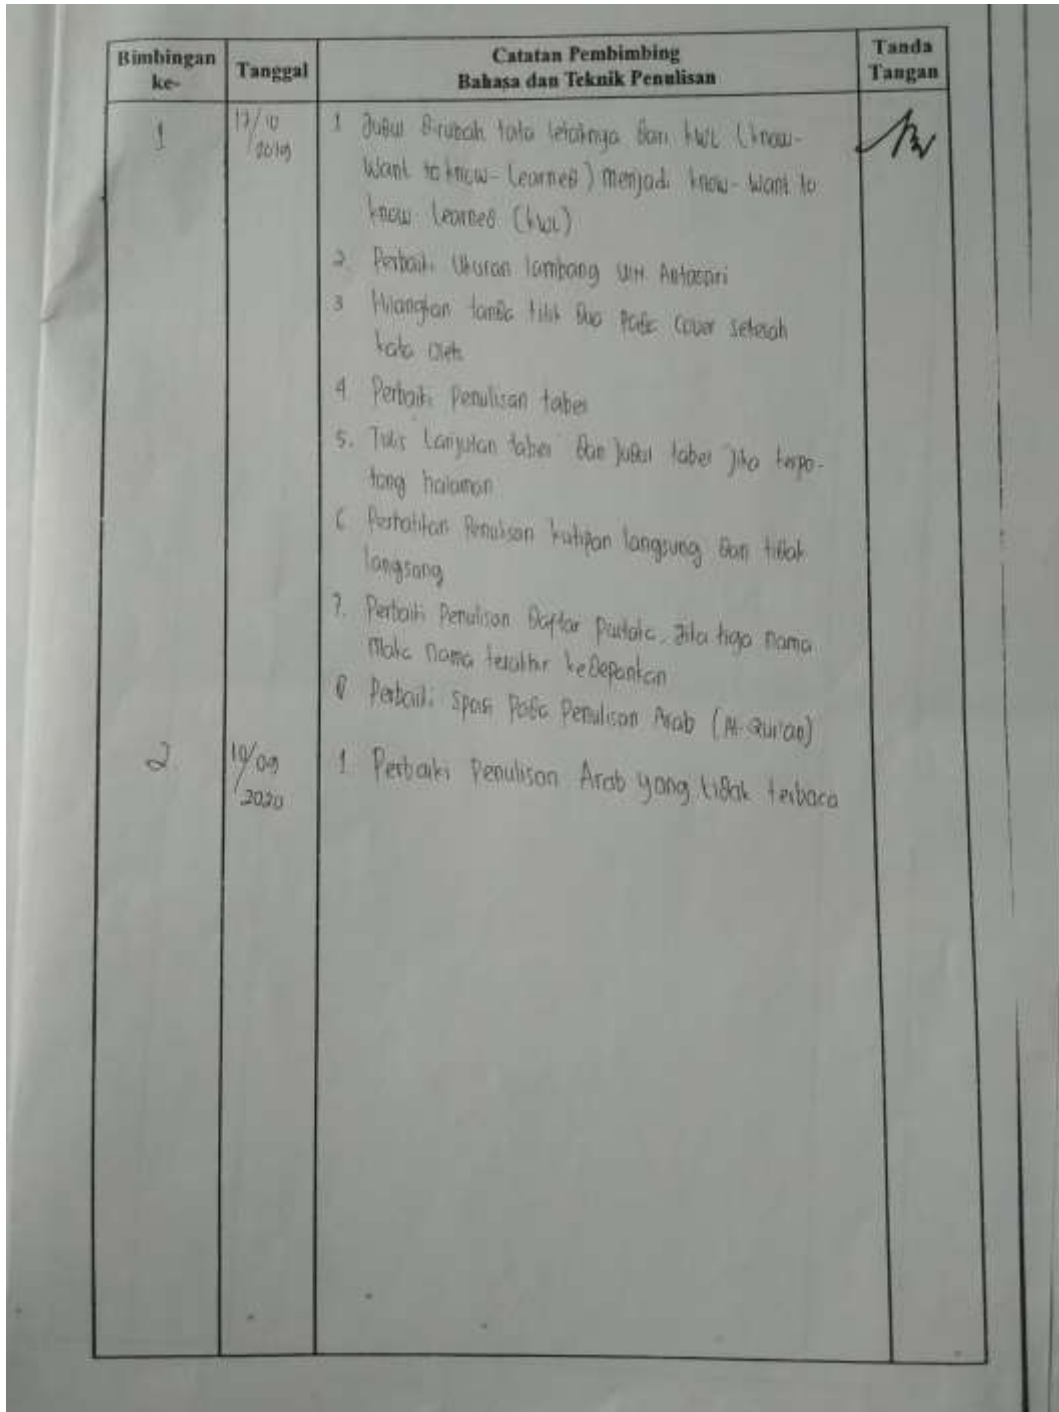 Bimbingan ke-
Tanggal
Catatan Pembimbing
Bahasa dan Teknik Penulisan
Tanda Tangan
1
17/10
2019
1 Judul dirubah tata letaknya dari KWL (Know-
Want to know- Learned) menjadi Know- Want to
Know Learned (KWL)
2. Perbaiki Ukuran lambang UIN Antasari
3 Hilangkan tanda titik dua pada Cover setelah
kata Oleh
4. Perbaiki Penulisan tabel
5. Tulis Lanjutan tabel dan Judul tabel Jika terpo-
tong halaman
6 Perhatikan Penulisan kutipan langsung dan tidak
langsung
7. Perbaiki Penulisan Daftar Pustaka. Jika tiga nama
Maka nama terakhir kedepankan
8 Perbaiki Spasi Pada Penulisan Arab (Al-Qur'an)
2.
/09
2020
1. Perbaiki Penulisan Arab yang tidak terbaca